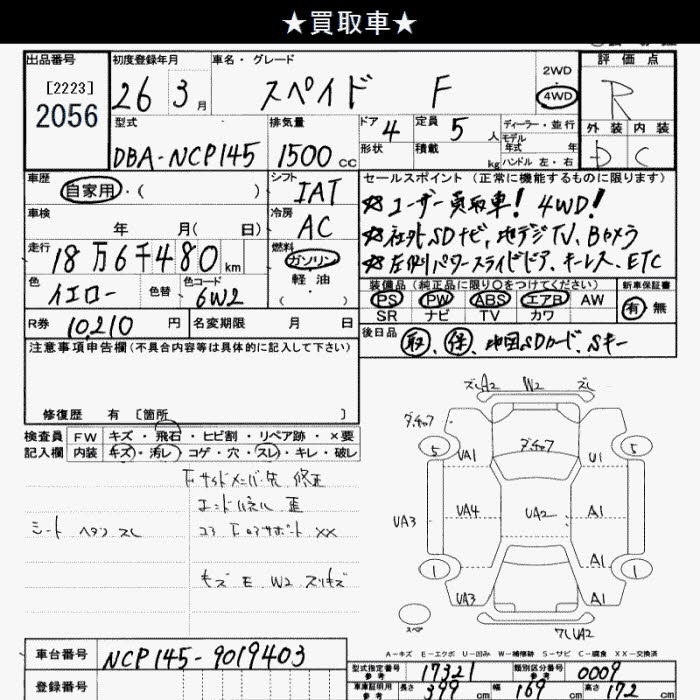 ★買取車★
出品番号
[2223]
2056
初度登録年月
26 3月
車名・グレード
スペイド F
2WD
4WD
評価点
R
外装 内装
D C
型式
DBA-NCP145
排気量
1500 cc
ドア 4
形状
定員 5 人
積載 kg
ディーラー・並行
モデル
年式 年
ハンドル 左・右
車歴
自家用・( )
シフト
IAT
セールスポイント (正常に機能するものに限ります)
☆ユーザー買取車! 4WD!
☆社外SDナビ, 地デジTV, Bカメラ
☆左側パワースライドドア、キーレス、ETC
車検
年 月( 日)
冷房
AC
走行
18万6千480km
燃料
ガソリン
軽・油
( )
色
イエロー
色替
色コード
6W2
装備品 (純正品に限り○をつけてください)
PS PW ABS エアB AW
SR ナビ TV カワ
新車保証書
有 無
R券 10,210 円
名変期限 月 日
後日品
取、保、地図SDカード、Sキー
注意事項申告欄(不具合内容等は具体的に記入して下さい)
修復歴 有 [箇所 ]
検査員
記入欄
FW キズ・飛石・ヒビ割・リペア跡・×要
内装 キズ・汚レ・コゲ・穴・スレ・キレ・破レ
Fサイドメンバー先 修正
エンドパネル 歪
コア
サポート XX
シート ヘタリ スレ
キズ E W2
A2 W2 ズレ
5 5
UA1 U1
UA3 UA4 UA2 A1
A1
1 1
UA3 A1
スペア
UA2
A-キズ E-エクボ U-凹み W-補修跡 S-サビ C-腐食 XX-交換済
車台番号
NCP145-9019403
登録番号
型式指定番号
参考
17321
類別区分番号
参考
0009
車庫証明用
参考
長さ 399 cm
幅 169 cm
高さ 172 cm